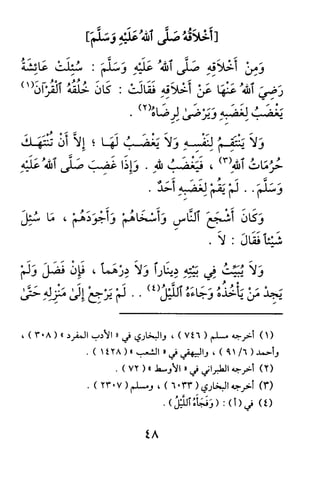 [أَخْلَاقُهُ صَلَّى ٱللهُ عَلَيْهِ وَسَلَّمَ]
وَمِنْ أَخْلَاقِهِ صَلَّى ٱللهُ عَلَيْهِ وَسَلَّمَ : سُئِلَتْ عَائِشَةُ
رَضِيَ ٱللهُ عَنْهَا عَنْ أَخْلَاقِهِ فَقَالَتْ : كَانَ خُلُقُهُ ٱلْقُرْآنَ(١)
يَغْضَبُ لِغَضَبِهِ وَيَرْضَىٰ لِرِضَاهُ(٢) .
وَلَا يَنْتَقِمُ لِنَفْسِهِ وَلَا يَغْضَبُ لَهَا ؛ إِلَّا أَنْ تُنْتَهَكَ
حُرُمَاتُ ٱللهِ(٣) ، فَيَغْضَبُ للهِ . وَإِذَا غَضِبَ صَلَّى ٱللهُ عَلَيْهِ
وَسَلَّمَ .. لَمْ يَقُمْ لِغَضَبِهِ أَحَدٌ .
وَكَانَ أَشْجَعَ ٱلنَّاسِ وَأَسْخَاهُمْ وَأَجْوَدَهُمْ ، مَا سُئِلَ
شَيْئاً فَقَالَ : لَا .
وَلَا يُبَيِّتُ فِي بَيْتِهِ دِينَاراً وَلَا دِرْهَماً ، فَإِنْ فَضَلَ وَلَمْ
يَجِدْ مَنْ يَأْخُذُهُ وَجَاءَهُ ٱللَّيْلُ(٤) .. لَمْ يَرْجِعْ إِلَىٰ مَنْزِلِهِ حَتَّىٰ
(١) أخرجه مسلم ( ٧٤٦ ) ، والبخاري في « الأدب المفرد » ( ٣٠٨ ) ،
وأحمد ( ٦/ ٩١ ) ، والبيهقي في « الشعب » ( ١٤٢٨ ) .
(٢) أخرجه الطبراني في « الأوسط » ( ٧٢ ) .
(٣) أخرجه البخاري ( ٦٠٣٣ ) ، ومسلم ( ٢٣٠٧ ) .
(٤) في (أ) : ( وَفَجَأَهُ ٱللَّيْلُ ) .
٤٨